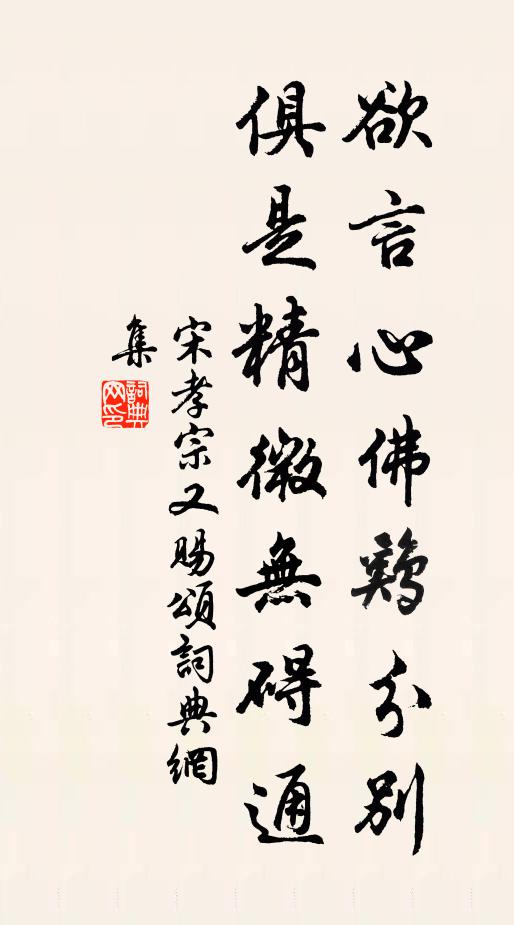 欲言心佛難分別
俱是精微無碍通
宋孝宗又賜頌詞典網
集
詞典
网印